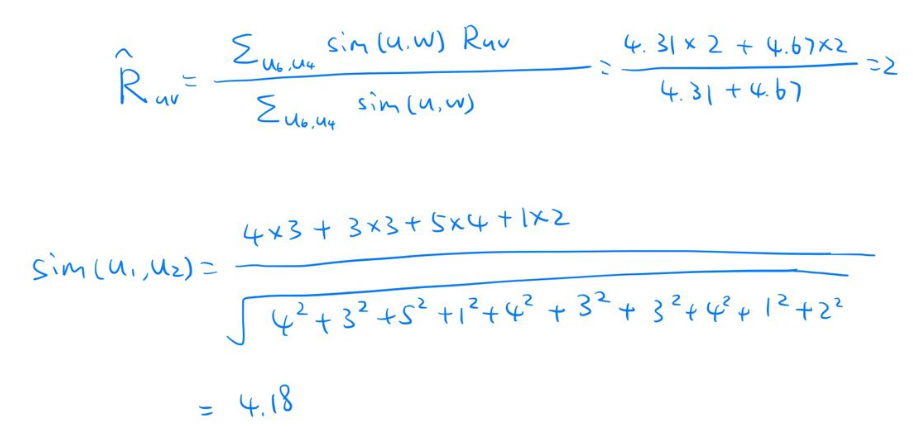 R̂uv = Σu6,u4 sim(u,w) Ruv / Σu6,u4 sim(u,w) = (4.31×2 + 4.67×2) / (4.31 + 4.67) = 2
sim(u1,u2) = (4×3 + 3×3 + 5×4 + 1×2) / √(4² + 3² + 5² + 1² + 4² + 3² + 3² + 4² + 1² + 2²)
= 4.18